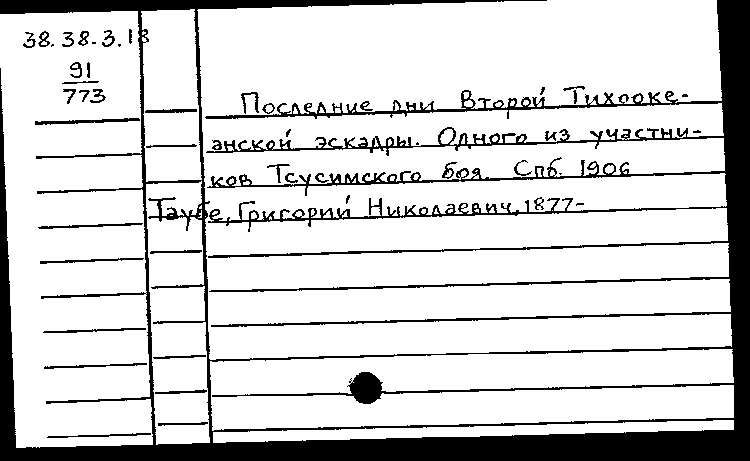 38.38.3.18
91
773
Последние дни Второй Тихооке-
анской эскадры. Одного из участни-
ков Тсусимского боя. Спб. 1906
Таубе, Григорий Николаевич, 1877-